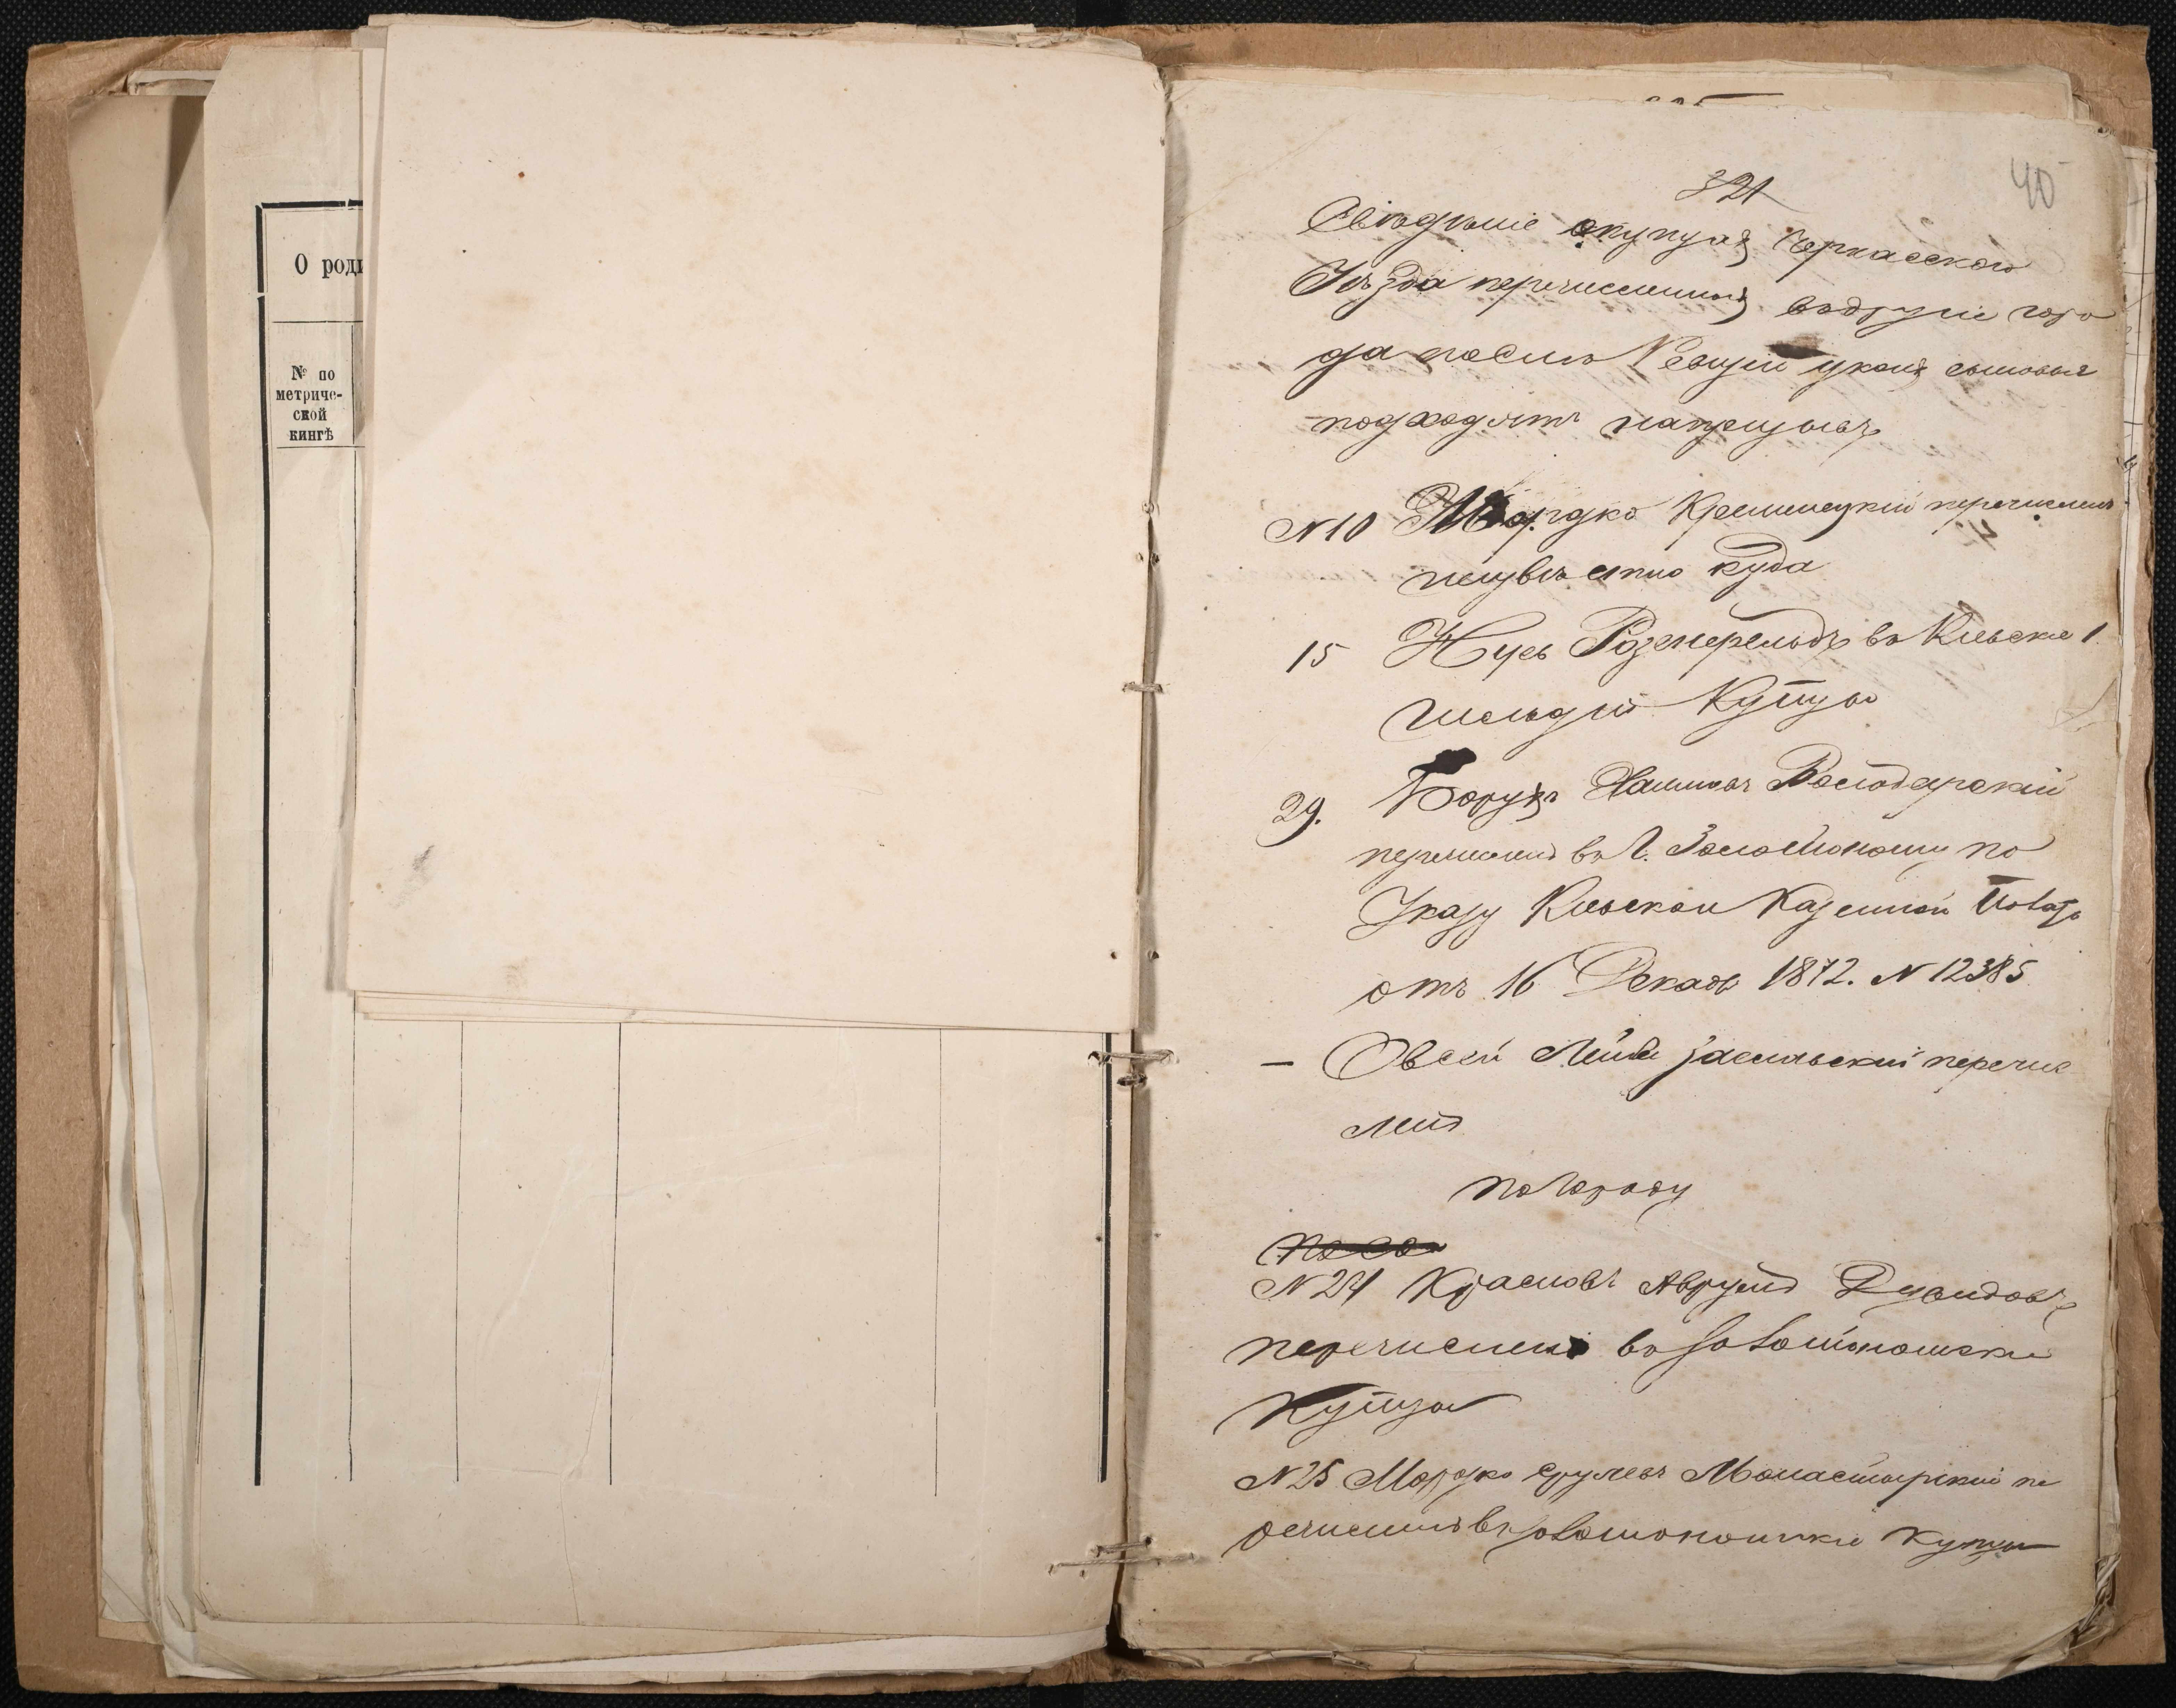 О роди
№ по
метриче-
ской
кингѣ
321
40
Свѣдѣніе окупцах Черкасского
Уѣзда перечисленных вдругие горо
да после Ревизіи укоих сыновья
подходятъ напризывъ
N 10 Мордко Кременецкій перечисленъ
неизвѣстно куда
15 Нусь Розенфельдъ въ Киевские 1.
гильдіи Купцы
29. Борухъ Хаимовъ Богодарскій
перечисленъ въ Г. Золотоношу по
Указу Киевской Казенной Полаты
отъ 16 Декабр 1872. N 12385
— Овсей Лейбъ Заславский перечис
ленъ
по городу
N 24 Красновъ Аврумъ Дувидовъ
перечисленъ въ золотоношские
Купцы
N 25 Мордко Срулевъ Монастырский пе
речисленъ въ золотоношские купцы